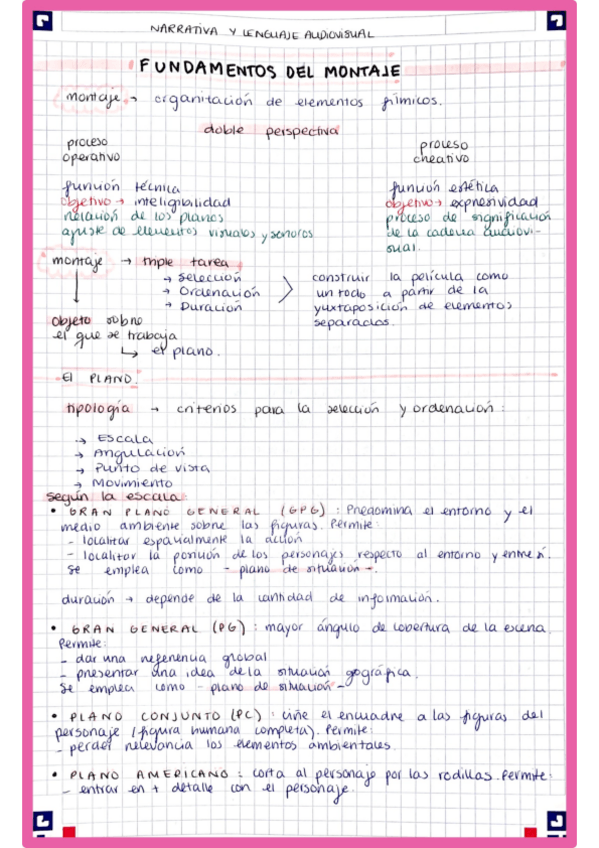 NARRATIVA Y LENGUAJE AUDIOVISUAL
FUNDAMENTOS DEL MONTAJE
montaje → organización de elementos fílmicos.
doble perspectiva
proceso
operativo
función técnica
objetivo → inteligibilidad
relación de los planos
ajuste de elementos visuales y sonoros
proceso
creativo
función estética
objetivo → expresividad
proceso de significación
de la cadena audiovi-
sual.
montaje → triple tarea
→ Selección
→ Ordenación
→ Duración
construir la película como
un todo a partir de la
yuxtaposición de elementos
separados.
objeto sobre
el que se trabaja
↳ el plano.
El PLANO.
tipología → criterios para la selección y ordenación:
→ Escala
→ Angulación
→ Punto de vista
→ Movimiento
según la escala
• GRAN PLANO GENERAL (GPG): Predomina el entorno y el
medio ambiente sobre las figuras. Permite:
- localizar espacialmente la acción
- localizar la posición de los personajes respecto al entorno y entre sí.
Se emplea como - plano de situación -.
duración → depende de la cantidad de información.
• GRAN GENERAL (PG): mayor ángulo de cobertura de la escena.
Permite:
- dar una referencia global
- presentar una idea de la situación gográfica.
Se emplea como - plano de situación -
• PLANO CONJUNTO (PC): ciñe el encuadre a las figuras del
personaje (figura humana completa). Permite:
- perder relevancia los elementos ambientales.
• PLANO AMERICANO: corta al personaje por las rodillas. Permite:
- entrar en + detalle con el personaje.